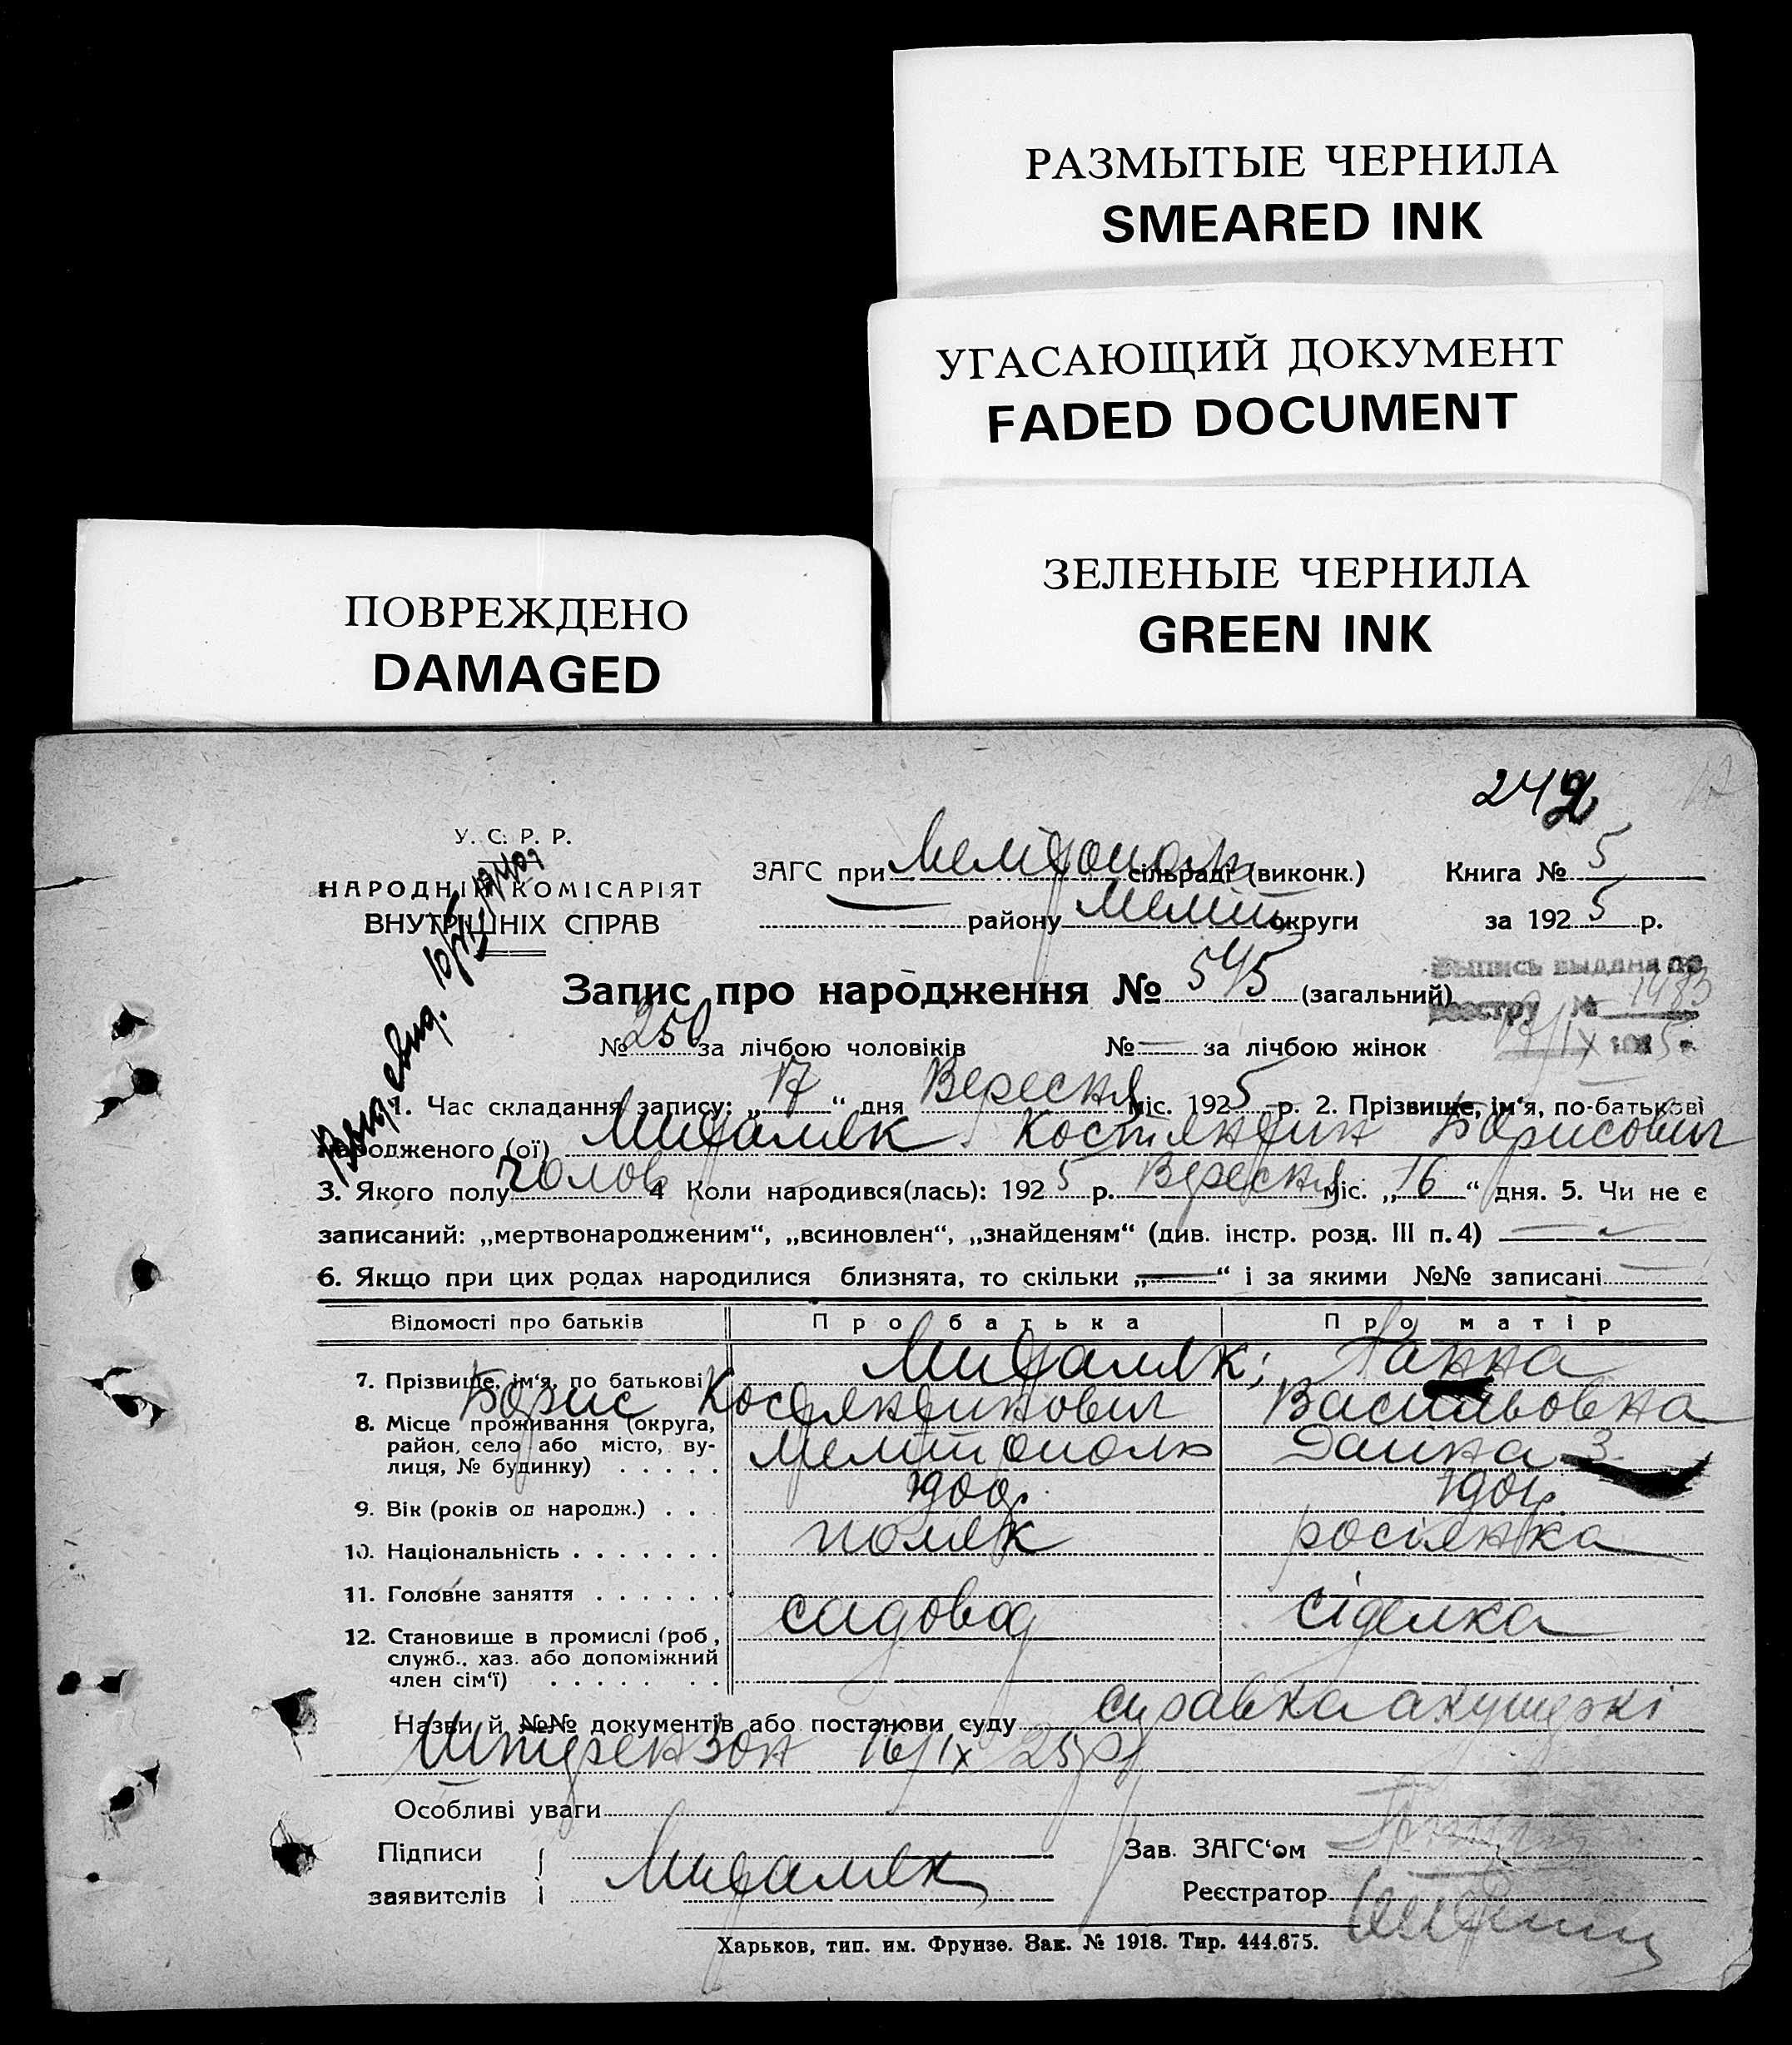 РАЗМЫТЫЕ ЧЕРНИЛА
SMEARED INK
УГАСАЮЩИЙ ДОКУМЕНТ
FADED DOCUMENT
ЗЕЛЕНЫЕ ЧЕРНИЛА
GREEN INK
ПОВРЕЖДЕНО
DAMAGED
242
У. С. Р. Р.
НАРОДНІЙ КОМІСАРІЯТ
ВНУТРІШНІХ СПРАВ
ЗАГС при Мелітополь сільраді (виконк.)
району Меліт округи
Книга № 5
за 1925 р.
Запис про народження № 545 (загальний)
Выпись выдана по
реестру № 1483
№ 250 за лічбою чоловіків № — за лічбою жінок
1. Час складання запису: „17“ дня Вересня міс. 1925 р. 2. Прізвище, ім'я, по-батькові
народженого (ої) Костянтин Борисович
3. Якого полу чолов 4 Коли народився(лась): 1925 р. Вересня міс. „16“ дня. 5. Чи не є
записаний: „мертвонародженим“, „всиновлен“, „знайденям“ (див. інстр. розд. III п. 4) —
6. Якщо при цих родах народилися близнята, то скільки „—“ і за якими №№ записані —
Відомості про батьків Про батька Про матір
7. Прізвище, ім'я, по батькові Ганна
Борис Костянтинович Васильовна
8. Місце проживання (округа,
район, село або місто, ву-
лиця, № будинку) Мелітополь 3
9. Вік (років од народж.) 1900 1901
10. Національність поляк росіянка
11. Головне заняття садовод сіделка
12. Становище в промислі (роб,
служб., хаз. або допоміжний
член сім'ї)
Назви й №№ документів або постанови суду справка акушеркі
16/IX 25р
Особливі уваги
Підписи
заявителів
Зав. ЗАГС'ом
Реєстратор
Харьков, тип. им. Фрунзе. Зак. № 1918. Тир. 444.675.